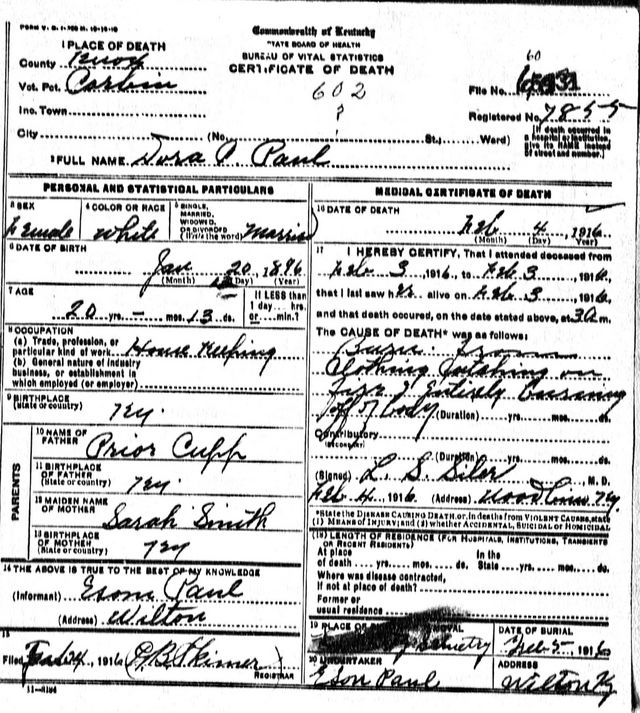 Commonwealth of Kentucky
STATE BOARD OF HEALTH
BUREAU OF VITAL STATISTICS
CERTIFICATE OF DEATH
602
1 PLACE OF DEATH
County Knox
Vot. Pct. Corbin
Inc. Town
City (No. St.; Ward)
60
File No.
Registered No. 7855
(If death occurred in a hospital or institution, give its NAME instead of street and number.)
2 FULL NAME Dora P Paul
PERSONAL AND STATISTICAL PARTICULARS
3 SEX Female
4 COLOR OR RACE White
5 SINGLE, MARRIED, WIDOWED, OR DIVORCED (Write the word) Married
6 DATE OF BIRTH
Jan 20, 1896
(Month) (Day) (Year)
7 AGE
20 yrs. – mos. 13 ds.
If LESS than 1 day... hrs. or... min.?
8 OCCUPATION
(a) Trade, profession, or particular kind of work House Keeping
(b) General nature of industry business, or establishment in which employed (or employer)
9 BIRTHPLACE (State or country) Ky.
PARENTS
10 NAME OF FATHER Prior Cupp
11 BIRTHPLACE OF FATHER (State or country) Ky
12 MAIDEN NAME OF MOTHER Sarah Smith
13 BIRTHPLACE OF MOTHER (State or country) Ky
14 THE ABOVE IS TRUE TO THE BEST OF MY KNOWLEDGE
(Informant) Esom Paul
(Address) Wilton
15
Filed 1916 Skinner
REGISTRAR
11-3184
MEDICAL CERTIFICATE OF DEATH
16 DATE OF DEATH
Feb 4, 1916
(Month) (Day) (Year)
17 I HEREBY CERTIFY, That I attended deceased from
Feb 3, 1916, to Feb 3, 1916,
that I last saw her alive on Feb 3, 1916,
and that death occured, on the date stated above, at m.
The CAUSE OF DEATH* was as follows:
Burn From
Clothing Catching on
Fire & Entirely Burning
off of body
(Duration) yrs. mos. ds.
Contributory
(SECONDARY)
(Duration) yrs. mos. ds.
(Signed) L. S. Siler M. D.
Feb 4, 1916 (Address) Ky
*State the DISEASE CAUSING DEATH, or, in deaths from VIOLENT CAUSES, state (1) MEANS OF INJURY; and (2) whether ACCIDENTAL, SUICIDAL or HOMICIDAL
(18) LENGTH OF RESIDENCE (FOR HOSPITALS, INSTITUTIONS, TRANSIENTS OR RECENT RESIDENTS)
At place of death yrs. mos. ds. In the State yrs. mos. ds.
Where was disease contracted, If not at place of death?
Former or usual residence
19 PLACE OF
DATE OF BURIAL
Feb 5, 1916
20 UNDERTAKER
Eson Paul
ADDRESS
Wilton Ky